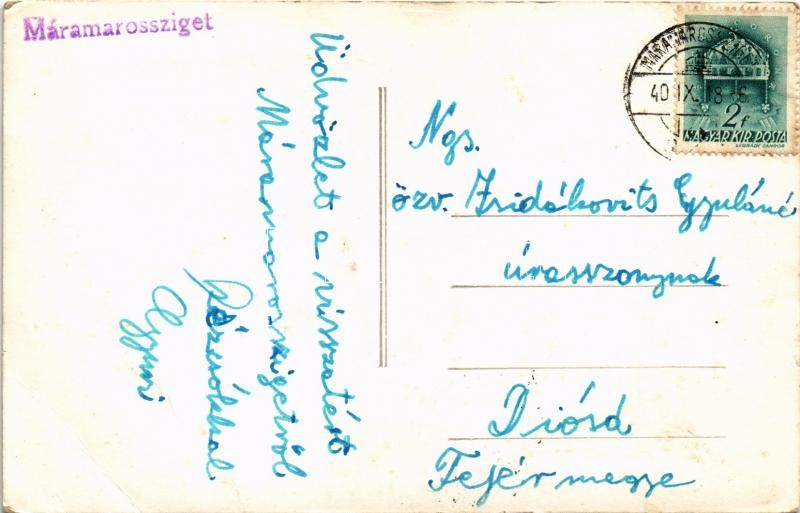 Máramarossziget
Üdvözlet a visszatért
Máramarosszigetről
Kézcsókkal
Gyuri
MÁRAMAROSSZIGET
40 IX. 18 - 6
2f
MAGYAR KIR. POSTA
LÉGRÁDY SÁNDOR
Ngs.
özv. Zsidákovits Gyuláné
úrasszonynak
Diósd
Fejér megye